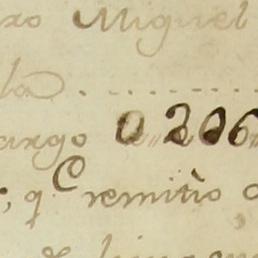 xo Miguel
la . . . . . . . . . .
argo 0"206"
; q. C remitìo